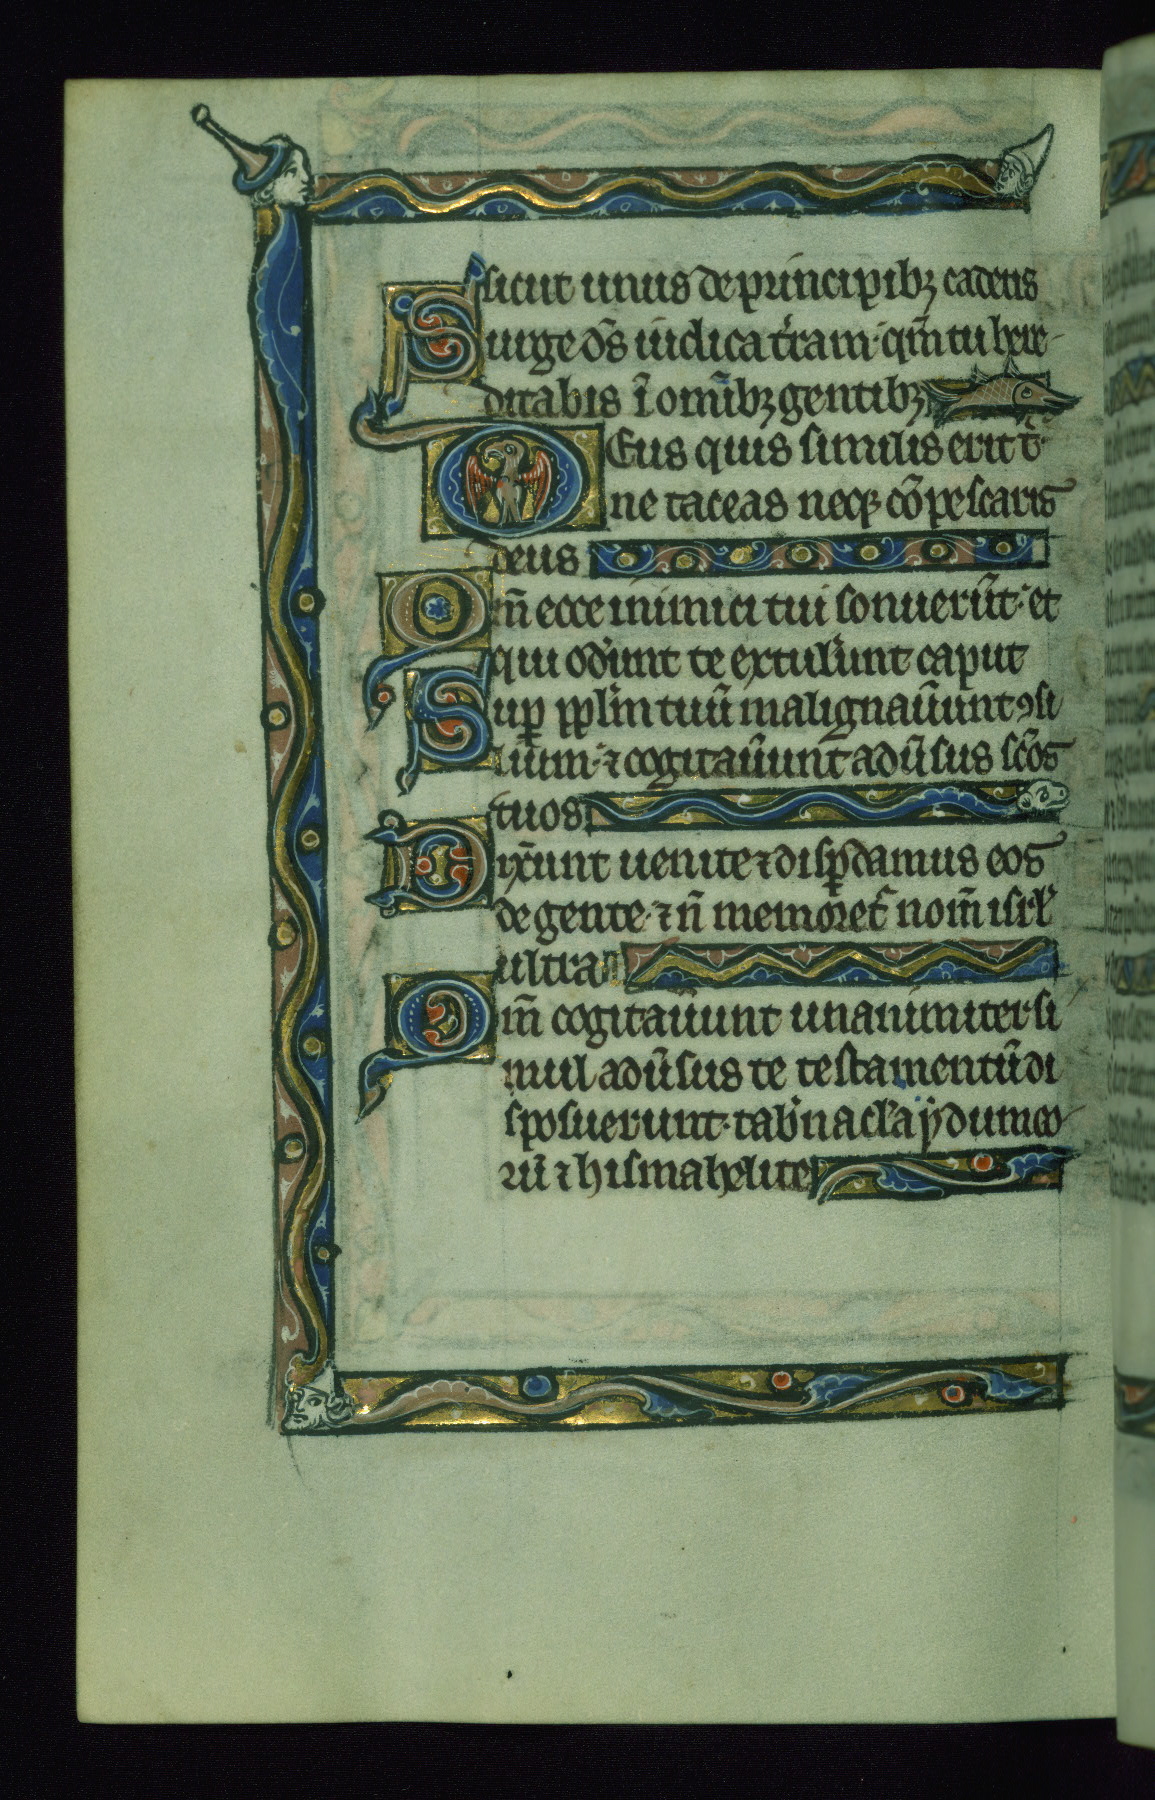 sicut unus de principibꝫ cadetis
Surge ds̄ iudica t̄ram · qm̄ tu here
ditabis ī omībꝫ gentibꝫ
Deus quis similis erit t̄·
ne taceas neqꝫ cōpescaris
deus
Qm̄ ecce inimici tui sonuerūt · et
qui oder̄unt te extuler̄unt caput
Suꝑ pplm̄ tuū malignau̅unt ꝯsi
lium · ⁊ cogitau̅unt adu̅sus scōs
tuos
Dixer̄unt uenite ⁊ disꝑdamus eos
de gente · ⁊ n̄ memoret᷑ nom̄ isrl̄
ultra
Qm̄ cogitau̅unt unanimiter si
mul adu̅sus te testamentū di
sposuerunt · tab̄nacl̄a ydumeo
rū ⁊ hismahelite